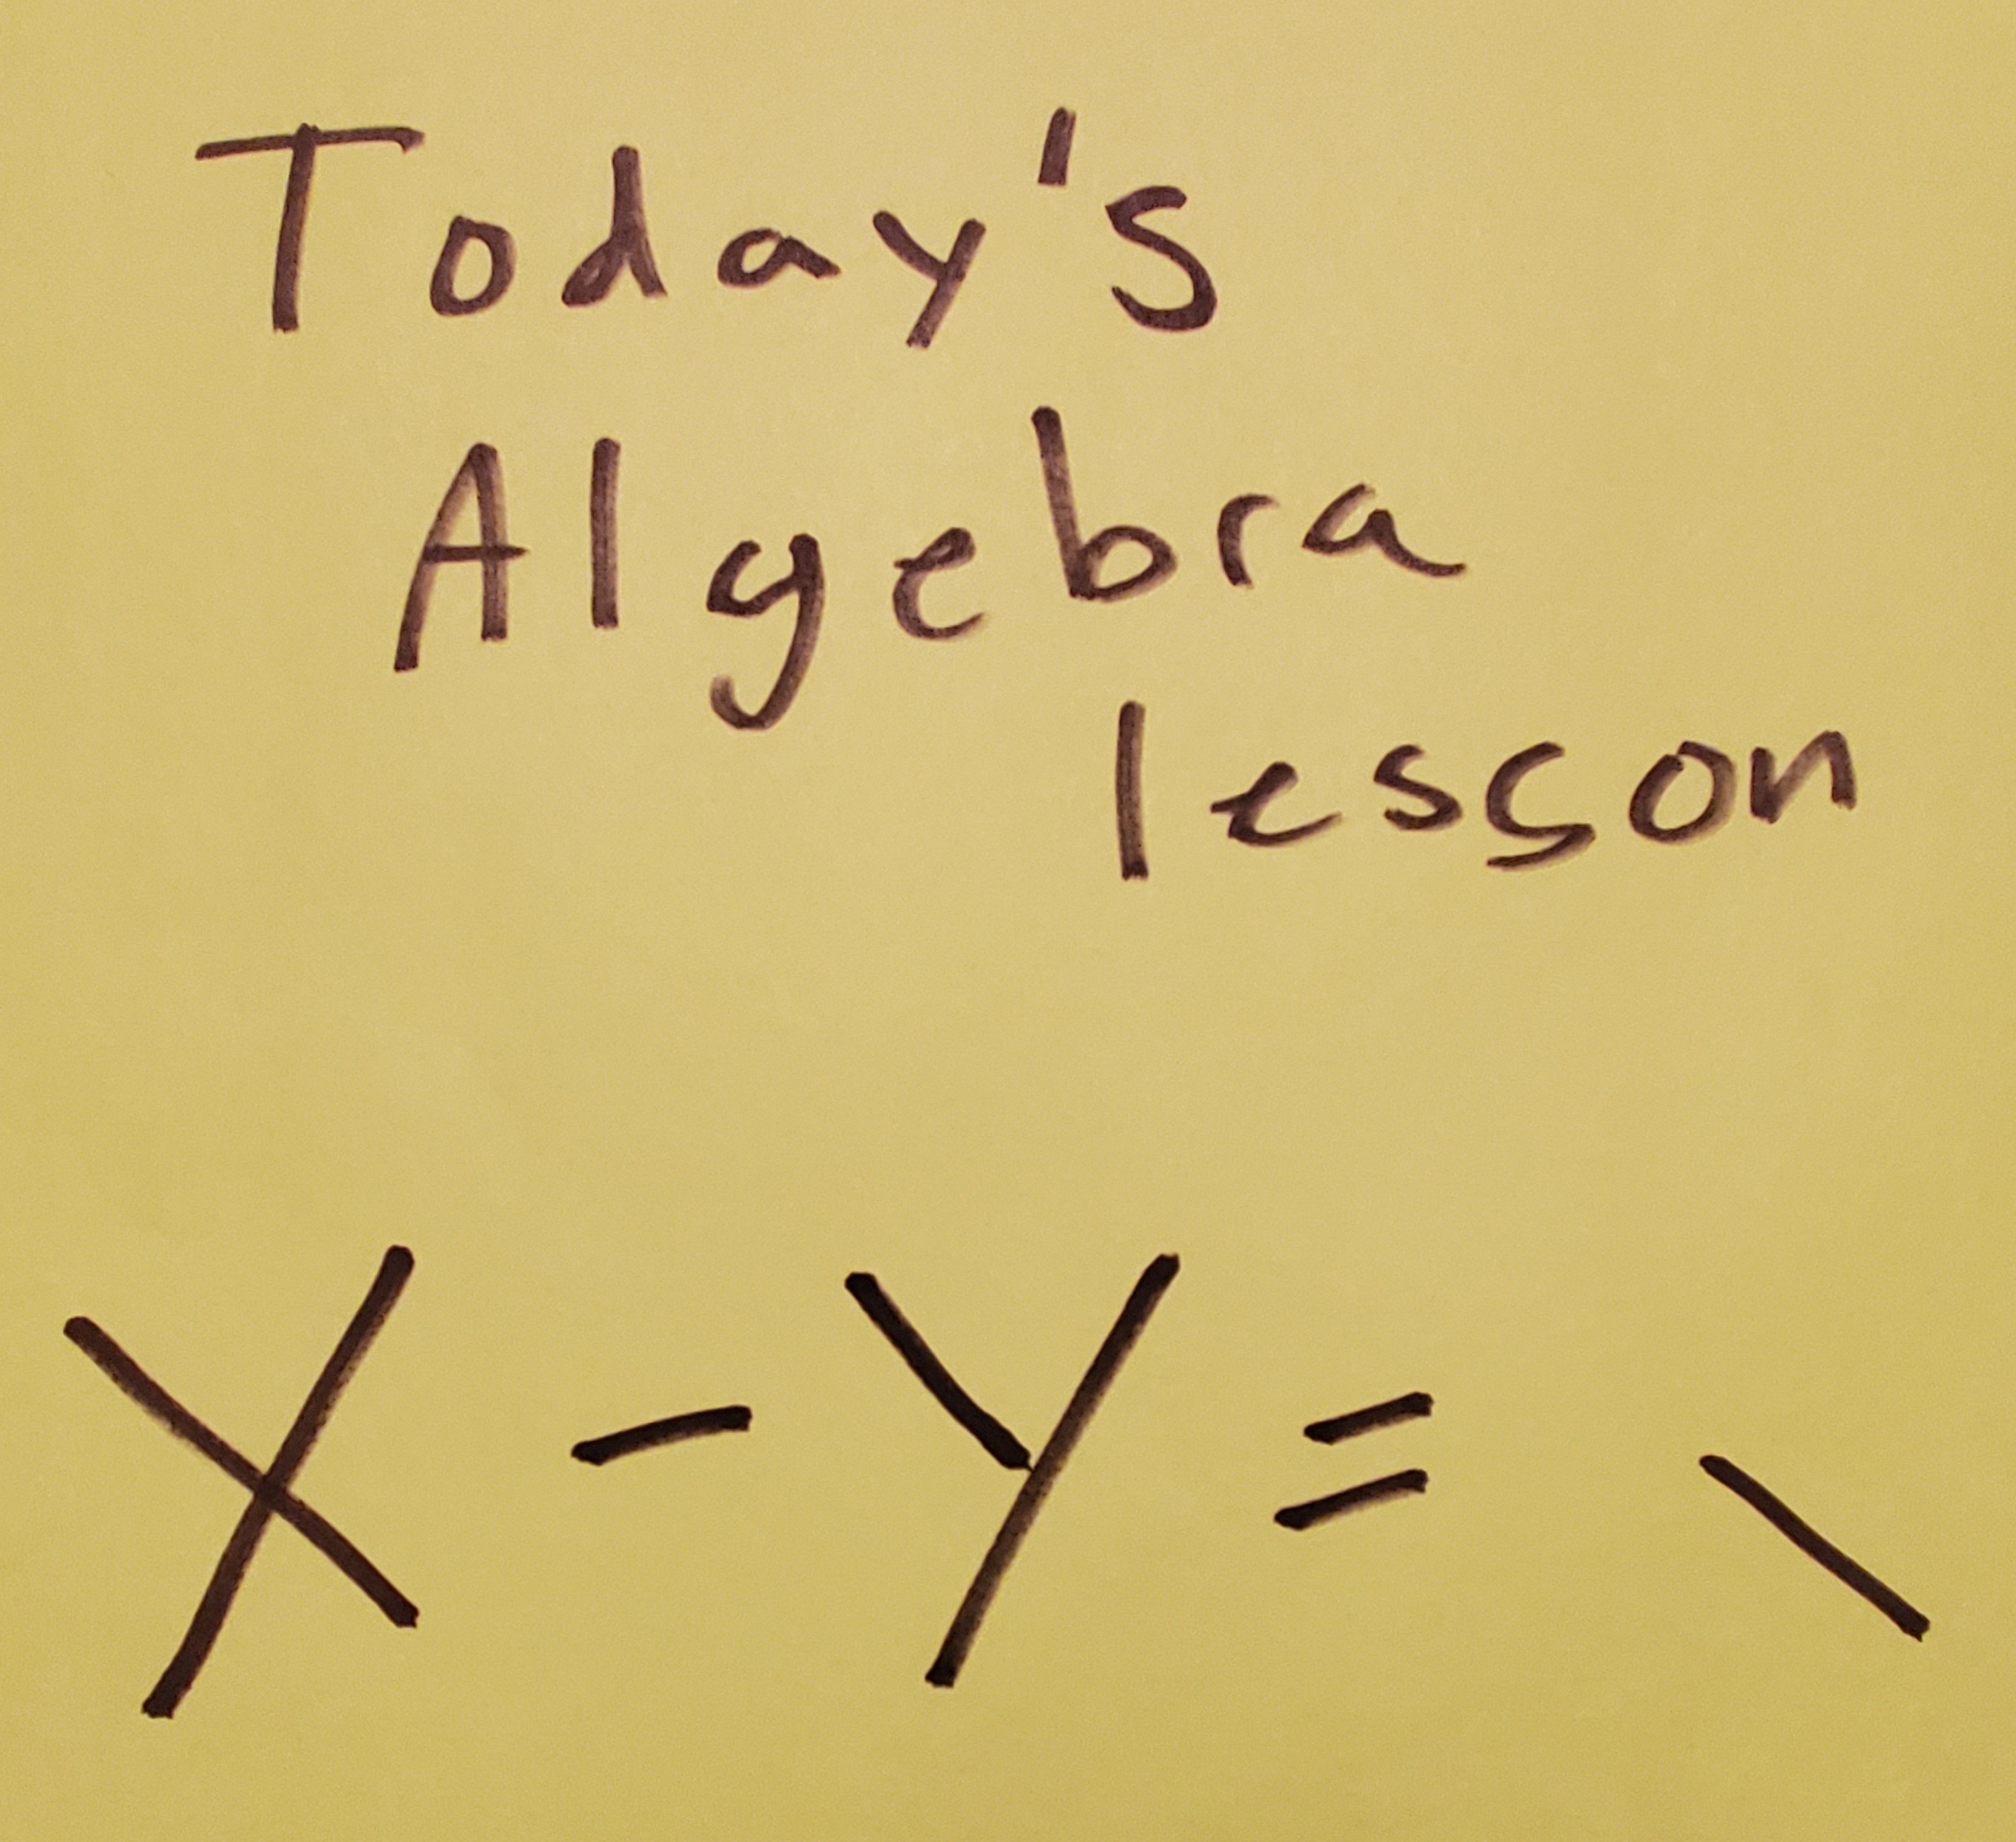 Today's
Algebra
lesson
X - Y = \